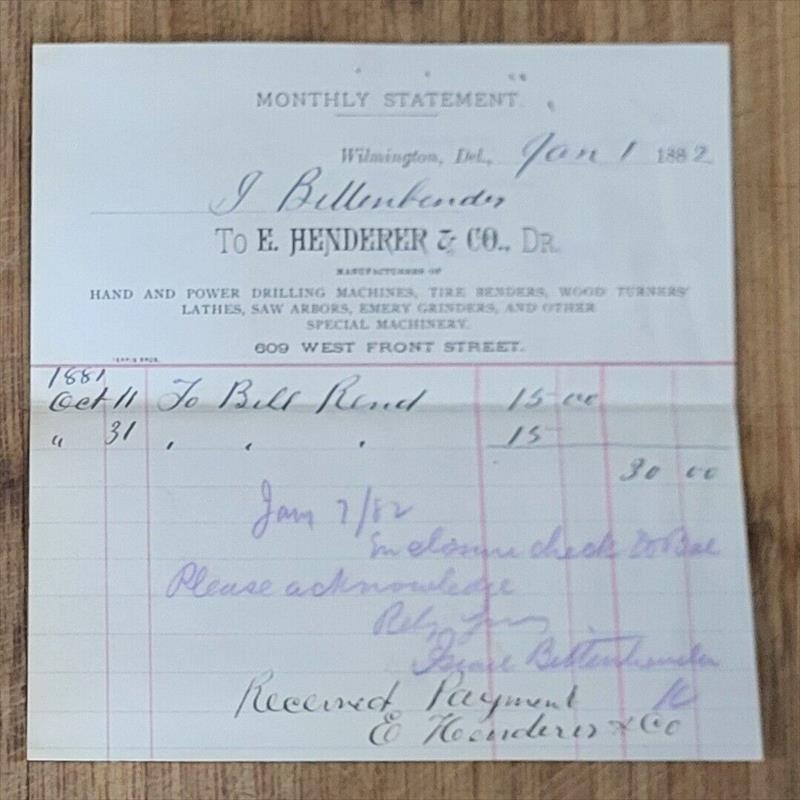 MONTHLY STATEMENT.
Wilmington, Del., Jan 1 1882
I Bittenbender
To E. HENDERER & CO., DR.
MANUFACTURERS OF
HAND AND POWER DRILLING MACHINES, TIRE BENDERS, WOOD TURNERS'
LATHES, SAW ARBORS, EMERY GRINDERS, AND OTHER
SPECIAL MACHINERY.
609 WEST FRONT STREET.
FERRIS BROS.
1881
Oct 11 To Bill Rend 15 00
" 31 " " " 15
30 00
Jan 7/82
check to Bal
Please acknowledge
Bittenbender
Received Payment
E Henderer & Co